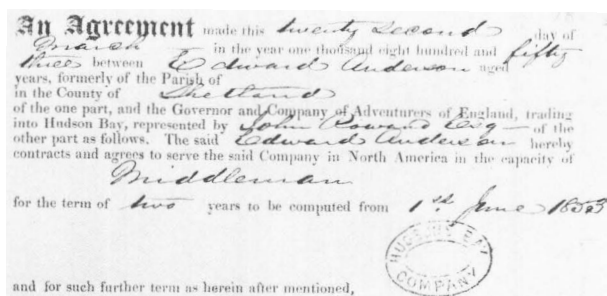 An Agreement made this twenty second day of
March in the year one thousand eight hundred and fifty
three between Edward Anderson aged
years, formerly of the Parish of
in the County of Shetland
of the one part, and the Governor and Company of Adventurers of England, trading
into Hudson Bay, represented by John Rowand Esq — of the
other part as follows. The said Edward Anderson hereby
contracts and agrees to serve the said Company in North America in the capacity of
Middleman
for the term of two years to be computed from 1st June 1853
HUDSON'S BAY
COMPANY
and for such further term as herein after mentioned,